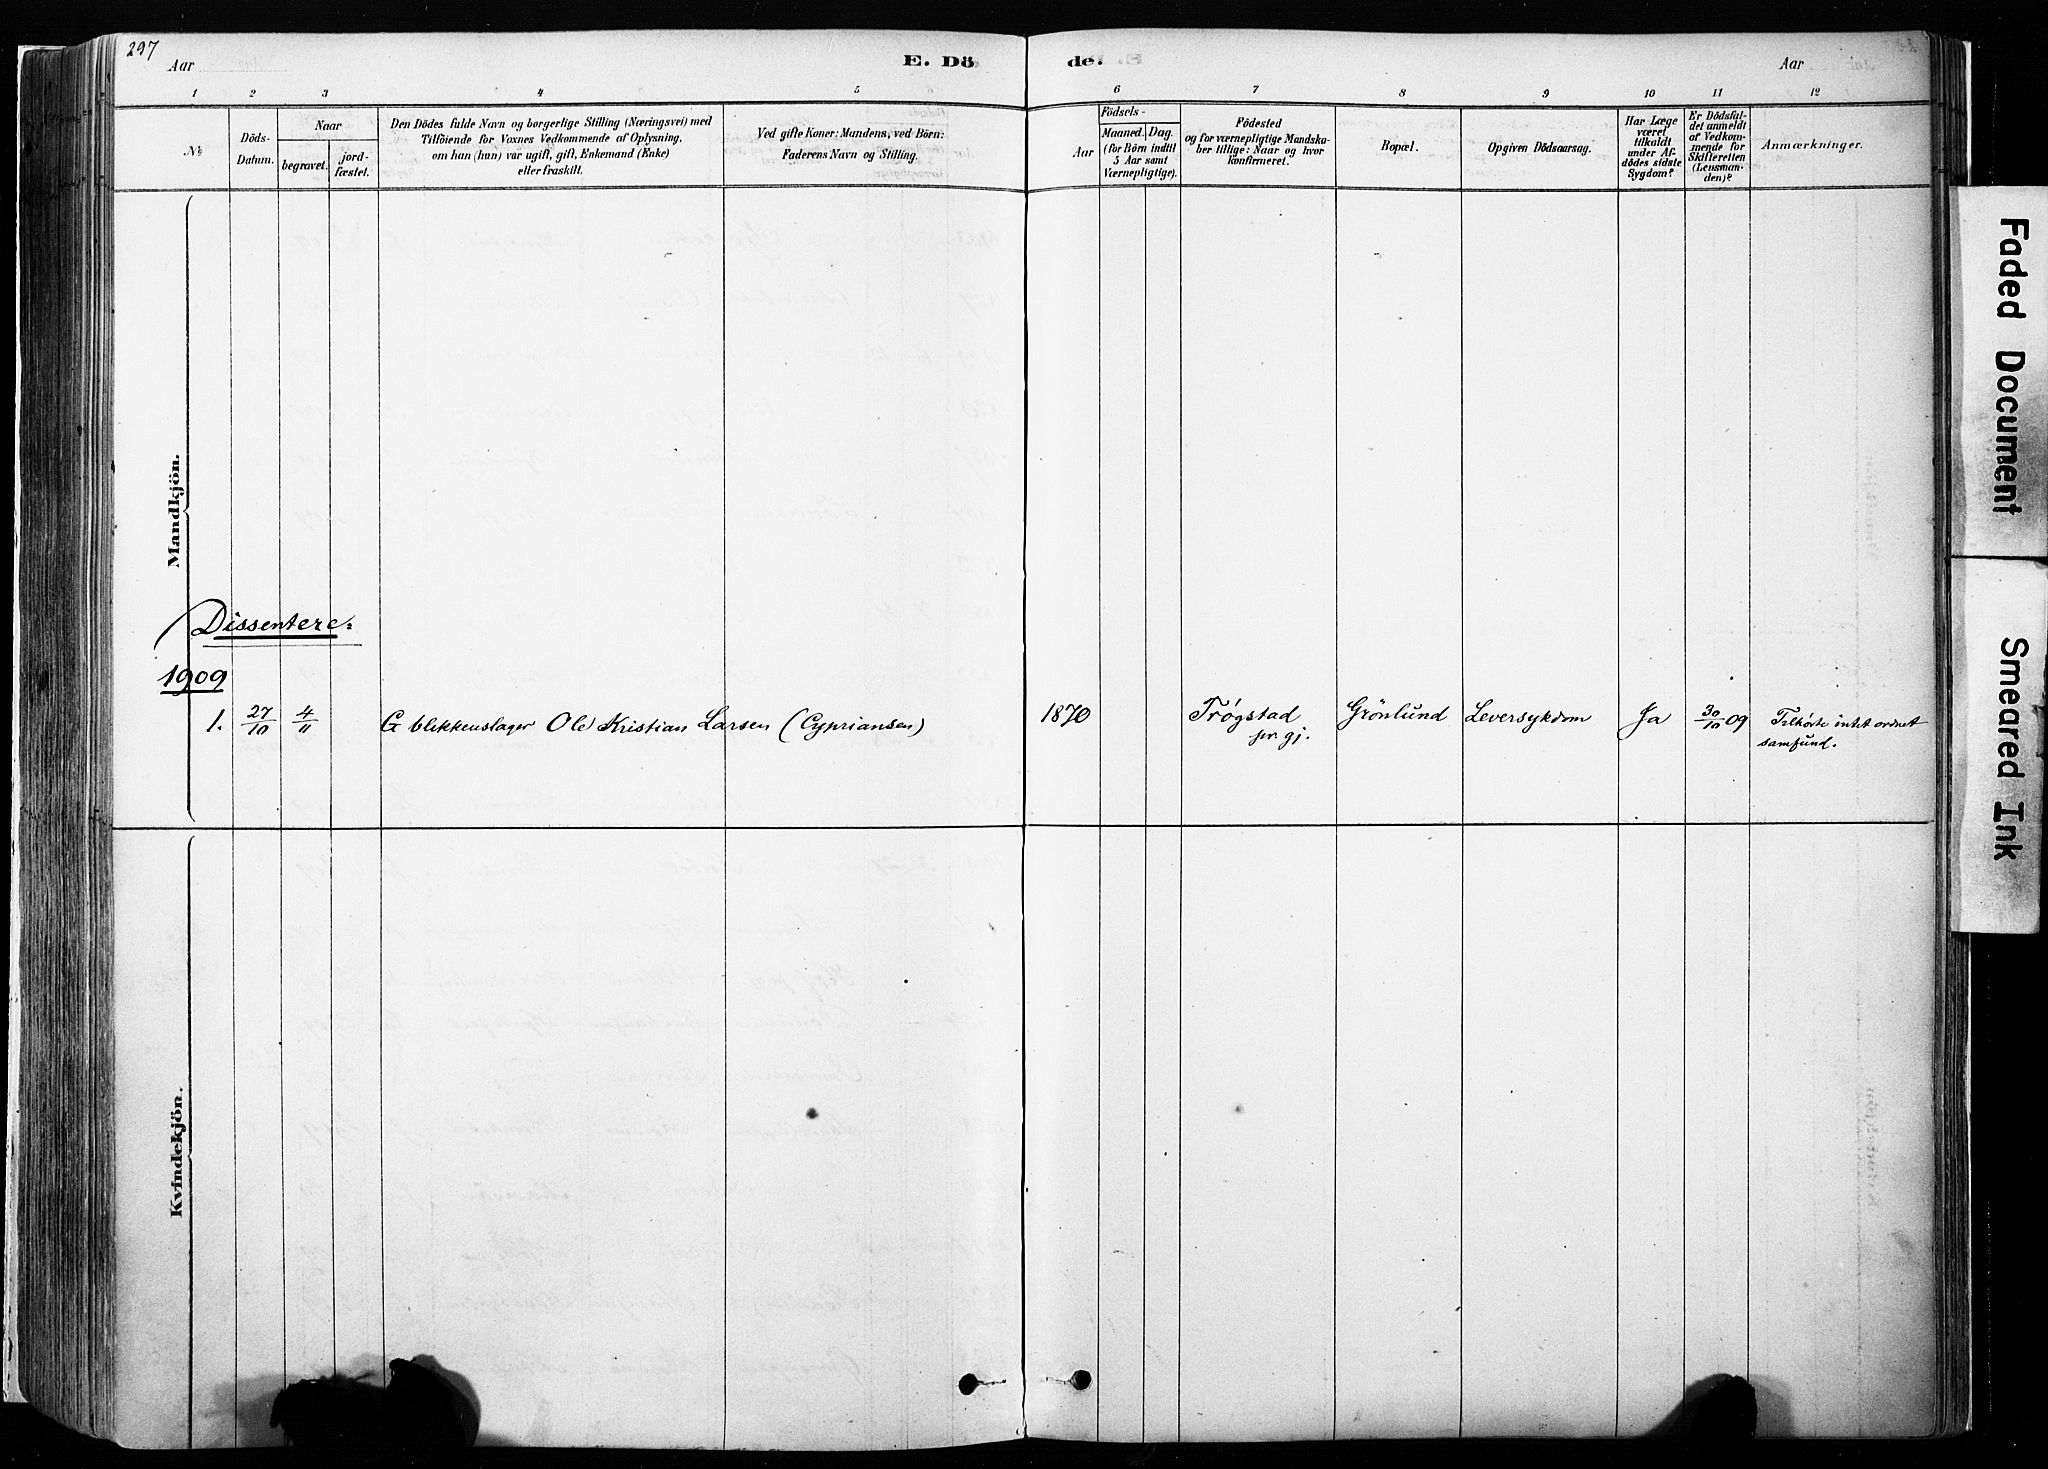 297
Aar
E. Dö
de.
Aar
1 2 3 4 5 6 7 8 9 10 11 12
№
Döds-
Datum.
Naar
begravet.
jord-
fæstet.
Den Dödes fulde Navn og borgerlige Stilling (Næringsvei) med
Tilföiende for Voxnes Vedkommende af Oplysning,
om han (hun) var ugift, gift, Enkemand (Enke)
eller fraskilt.
Ved gifte Koner: Mandens, ved Börn:
Faderens Navn og Stilling.
Aar
Födsels-
Maaned. Dag.
(for Börn indtil
5 Aar samt
Værnepligtige).
Födested
og for værnepligtige Mandska-
ber tillige: Naar og hvor
konfirmeret.
Bopæl.
Opgiven Dödsaarsag.
Har Læge
været
tilkaldt
under Af-
dödes sidste
Sygdom?
Er Dödsfal-
det anmeldt
af Vedkom-
mende for
Skifteretten
(Lensman-
den)?
Anmærkninger.
Mandkjön.
Dissentere:
1909
1. 27/10 4/11 G blikkenslager Ole Kristian Larsen (Cypriansen) 1870 Trøgstad Grönlund Leversykdom Ja 30/10 09 Tilhörte intet ordnet
pr. gj. samfund.
Kvindekjön.
Faded Document
Smeared Ink